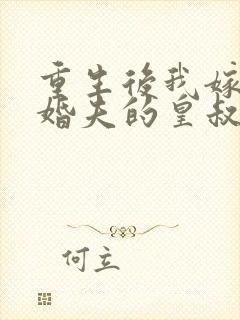 重生後我嫁
婚夫的皇叔
何立